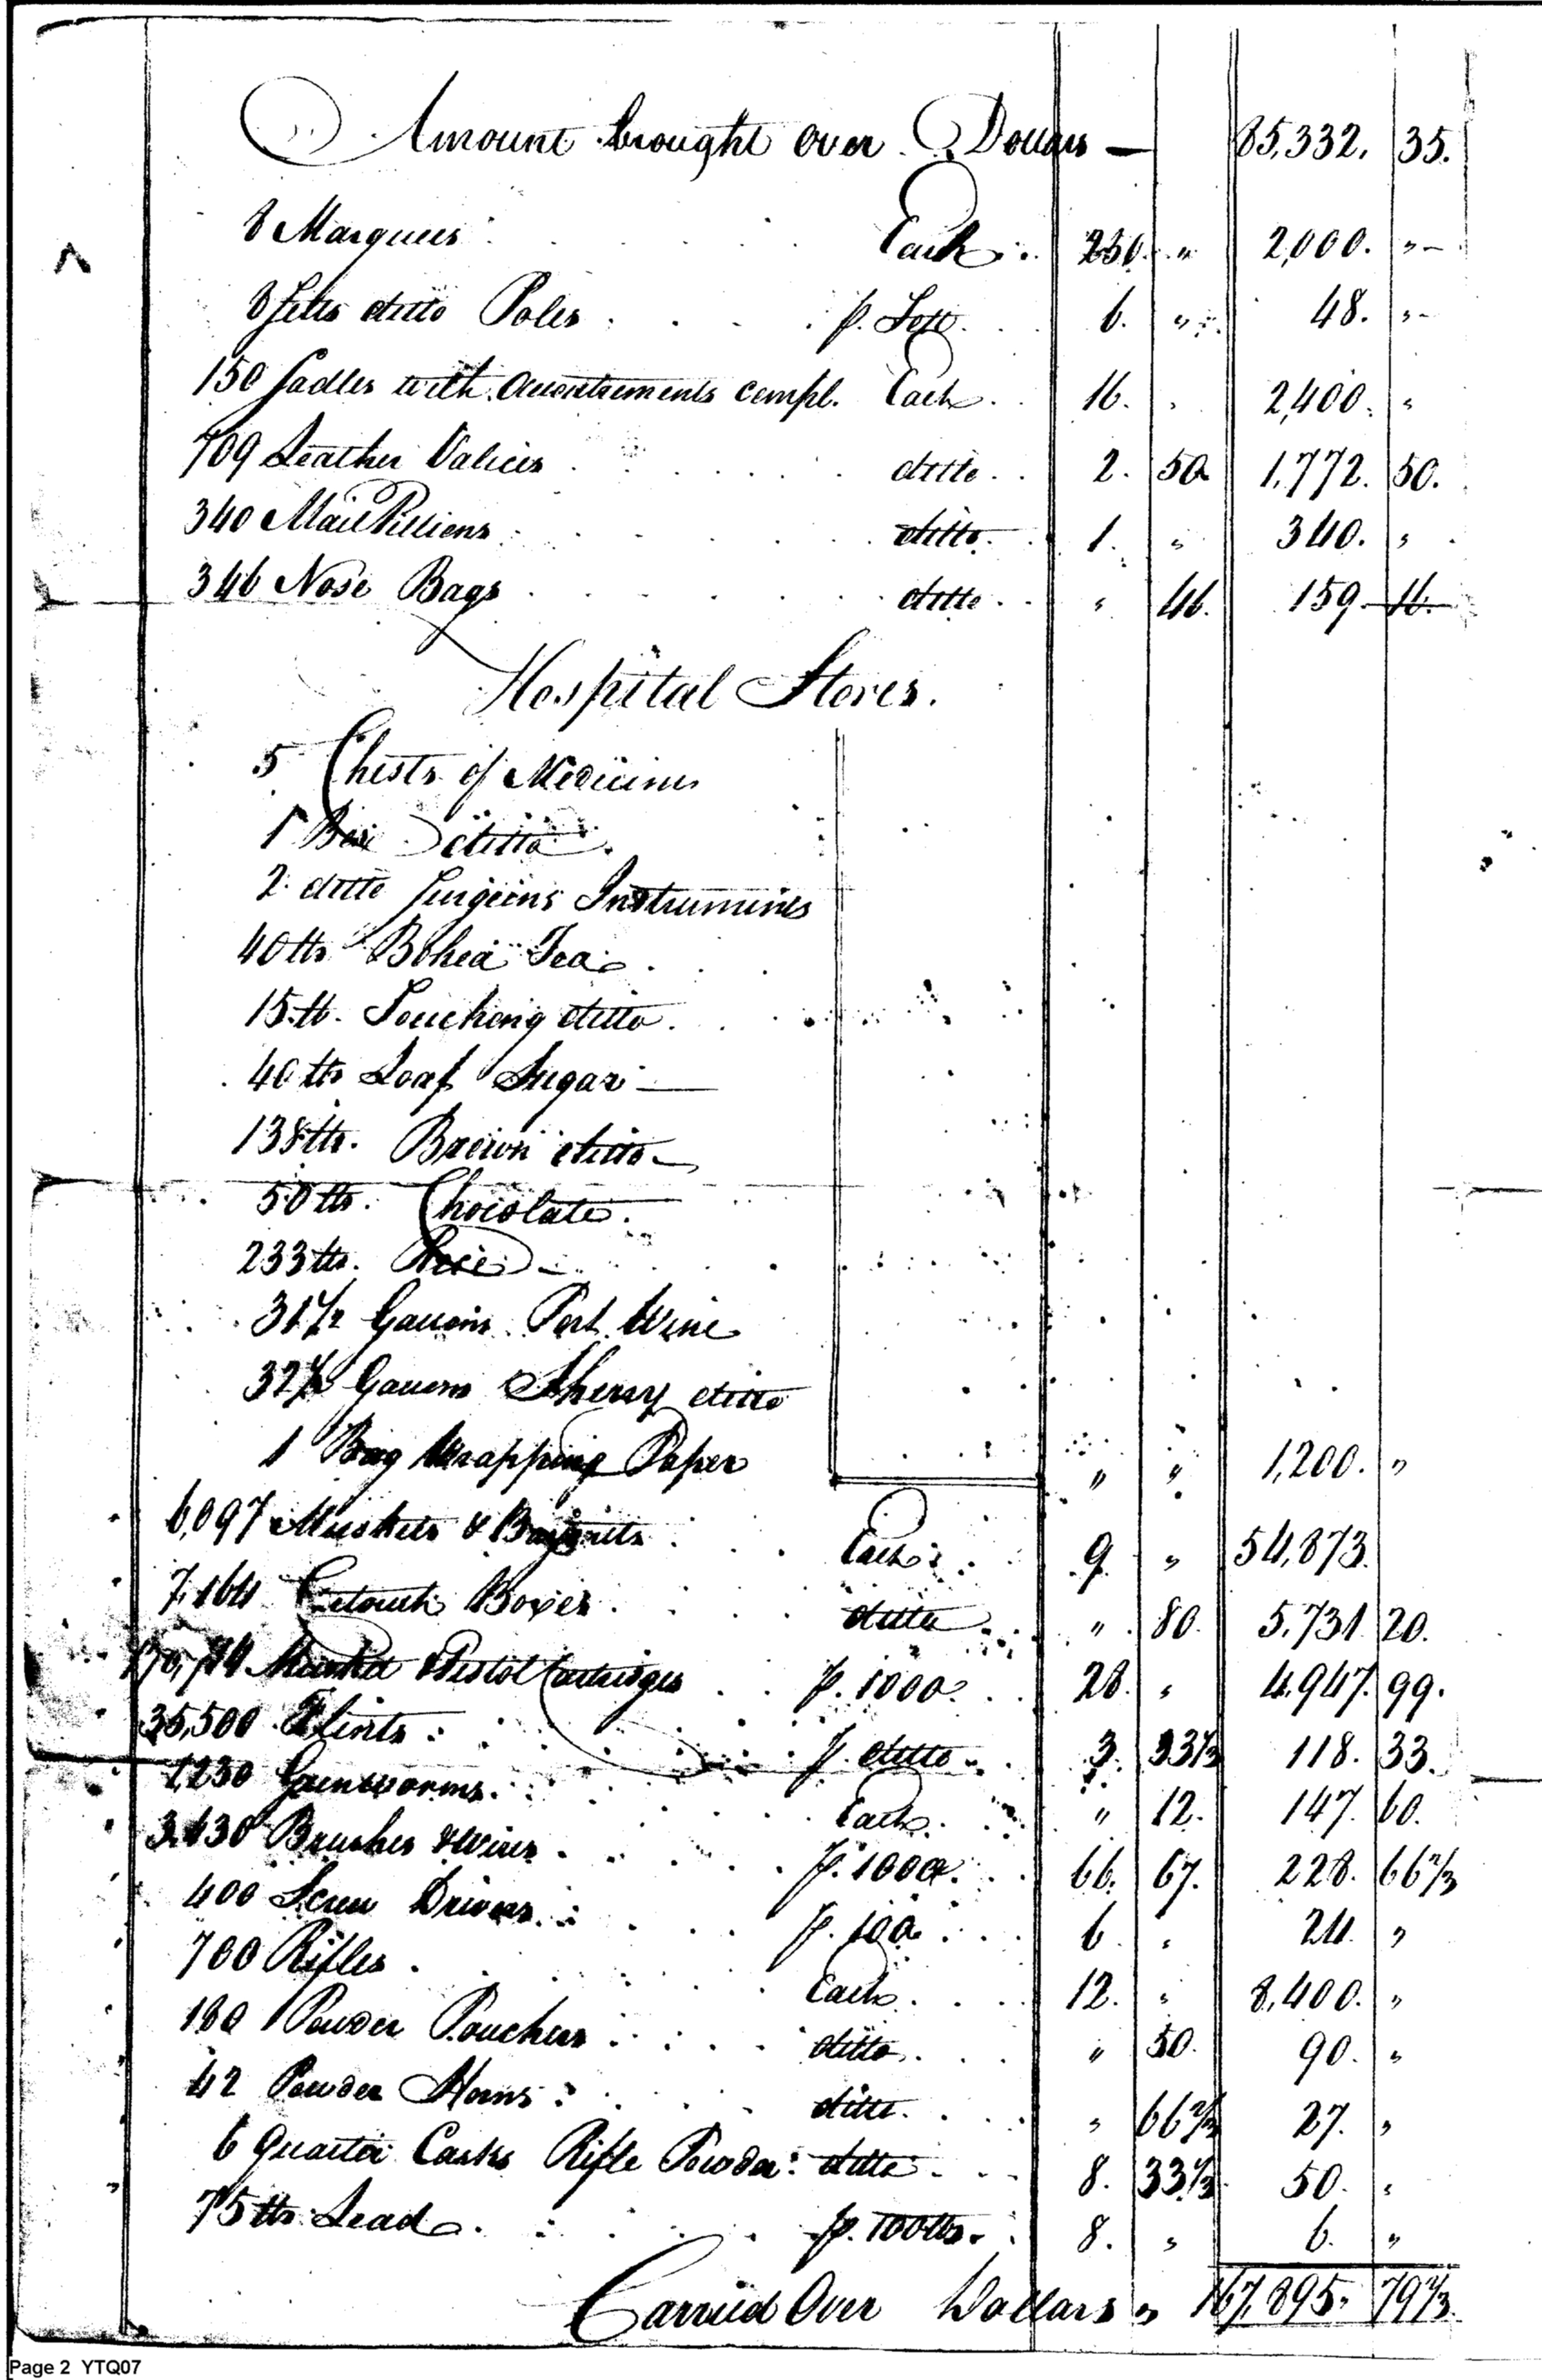 Amount brought over Dollars — 85,332. 35.
8 Marquees Each 250. " 2,000. "
8 Setts ditto Poles p. Sett. 6. " 48. "
150 Sadles with Accoutrements compl. Each 16. " 2,400. "
709 Leather Valices ditto 2. 50 1,772. 50.
340 Mail Pilliens ditto 1. " 340. "
346 Nose Bags ditto " 46. 159. 16.
Hospital Stores.
5 Chests of Medicines
1 Box ditto.
2 ditto Surgeons Instruments
40 lbs Bohea Tea
15 lb. Souchong ditto.
40 lbs Loaf Sugar —
138 lbs. Brown ditto —
50 lbs. Chocolate.
233 lbs. Rice —
31 1/2 Gallons Port Wine
32 1/2 Gallons Sherry ditto
1 Bag Wrapping Paper " " 1,200. "
6,097 Muskets & Bayonets Each 9. " 54,873.
7,164 Cartouch Boxes ditto " 80. 5,731. 20.
176,714 Musket & Pistol Cartridges p. 1000. 28. " 4,947. 99.
35,500 Flints p. ditto 3. 33 1/3 118. 33.
1,230 Gunworms. Each. " 12. 147. 60.
3,430 Brushes & Wires p. 1000. 66. 67. 228. 66 2/3
400 Screw Drivers. p. 100. 6. " 24. "
700 Rifles Each 12. " 8,400. "
180 Powder Pouches ditto " 50. 90. "
42 Powder Horns ditto. " 66 2/3 27. "
6 Quarter Casks Rifle Powder ditto 8. 33 1/3 50. "
75 lbs Lead p. 100 lbs. 8. " 6. "
Carried Over Dollars " 167,895. 79 2/3
Page 2 YTQ07